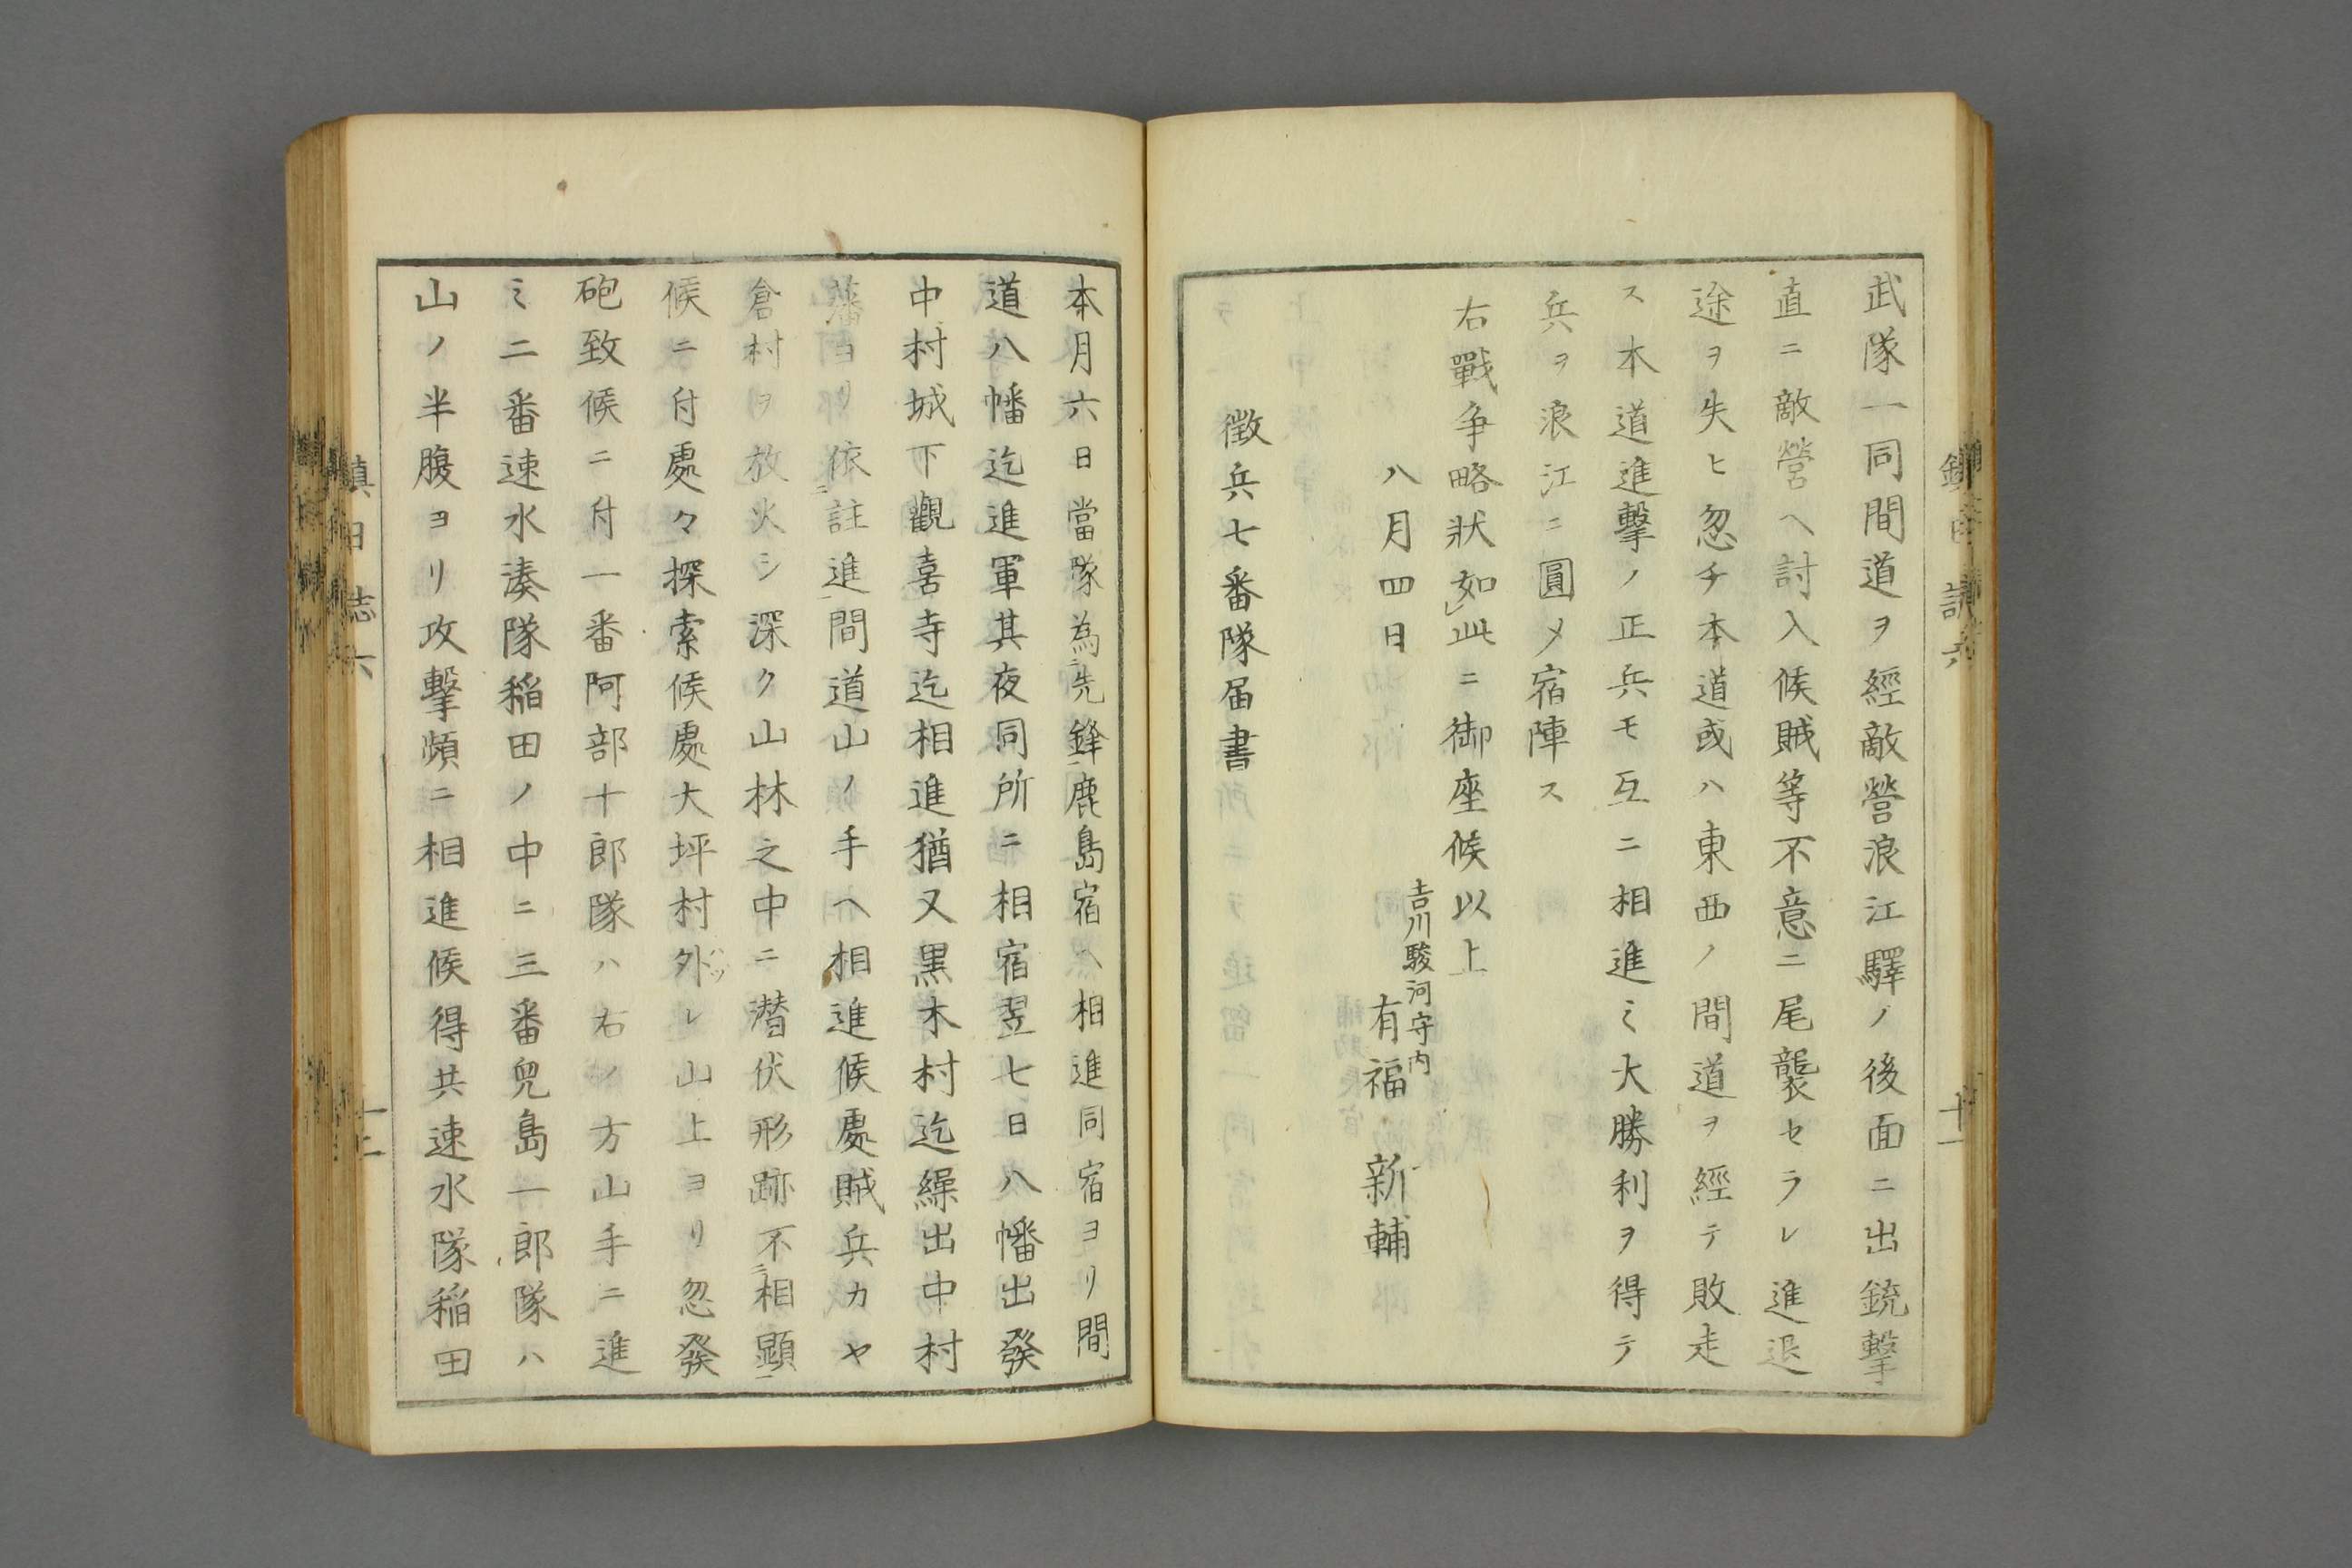 武隊一同間道ヲ經敵營浪江驛ノ後面ニ出銃擊
直ニ敵營ヘ討入候賊等不意ニ尾襲セラレ進退
途ヲ失ヒ忽チ本道或ハ東西ノ間道ヲ經テ敗走
ス本道進擊ノ正兵モ互ニ相進ミ大勝利ヲ得テ
兵ヲ浪江ニ圓メ宿陣ス
右戰争略狀如レ此ニ御座候以上
吉川駿河守内
八月四日 有福新輔
徴兵七番隊届書
本月六日當隊為二先鋒一鹿島宿ヘ相進同宿ヨリ間
道八幡迄進軍其夜同所ニ相宿翌七日八幡出發
中村城下觀喜寺迄相進猶又黒木村迄繰出中村
藩ヨリ依二註進一間道山ノ手ヘ相進候處賊兵カヤ
倉村ヲ放火シ深ク山林之中ニ潜伏形跡不二相顕一
候ニ付處々探索候處大坪村外レ山上ヨリ忽發
ハツ
砲致候ニ付一番阿部十郎隊ハ右ノ方山手ニ進
ミ二番速水湊隊稲田ノ中ニ三番兒島一郎隊ハ
山ノ半腹ヨリ攻擊頻ニ相進候得共速水隊稲田
鎮日誌六
十二